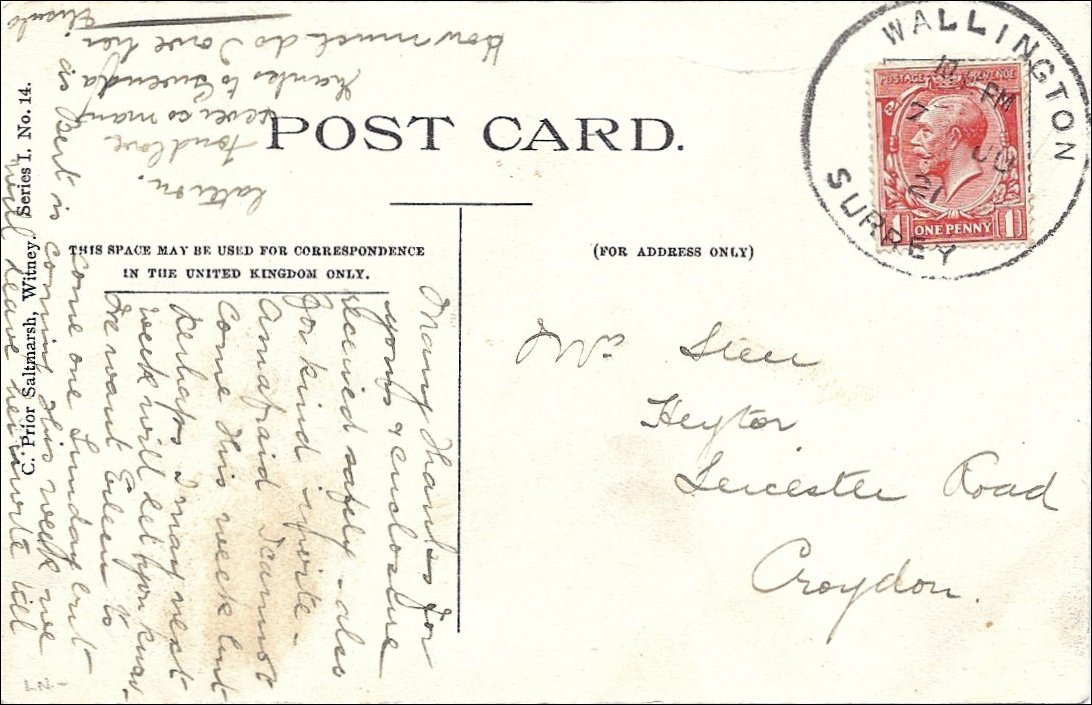 POST CARD.
THIS SPACE MAY BE USED FOR CORRESPONDENCE
IN THE UNITED KINGDOM ONLY.
(FOR ADDRESS ONLY)
C. Prior Saltmarsh, Witney. Series I. No. 14.
WALLINGTON
SURREY
PM
21
POSTAGE REVENUE
1 ONE PENNY 1
Steer
Heytor
Leicester Road
Croydon.
Many thanks for
yours & enclosure
received safely – also
for kind invite –
Am afraid I cannot
come this week but
perhaps I may next
week will let you know –
We want Eileen to
come one Sunday but
is Bert is coming this week we
will leave her invite till
How much do I owe her
thanks to Gwenda
ever so many
fond love
LN –